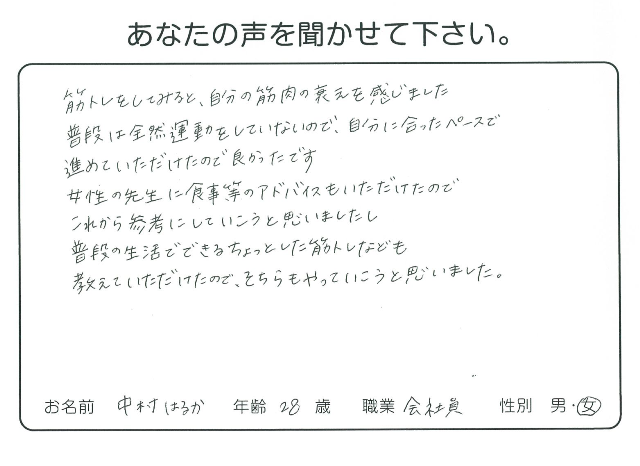 あなたの声を聞かせて下さい。
筋トレをしてみると、自分の筋肉の衰えを感じました
普段は全然運動をしていないので、自分に合ったペースで
進めていただけたので良かったです
女性の先生に食事等のアドバイスもいただけたので
これから参考にしていこうと思いましたし
普段の生活でできるちょっとした筋トレなども
教えていただけたので、そちらもやっていこうと思いました。
お名前 中村はるか 年齢 28 歳 職業 会社員 性別 男・女